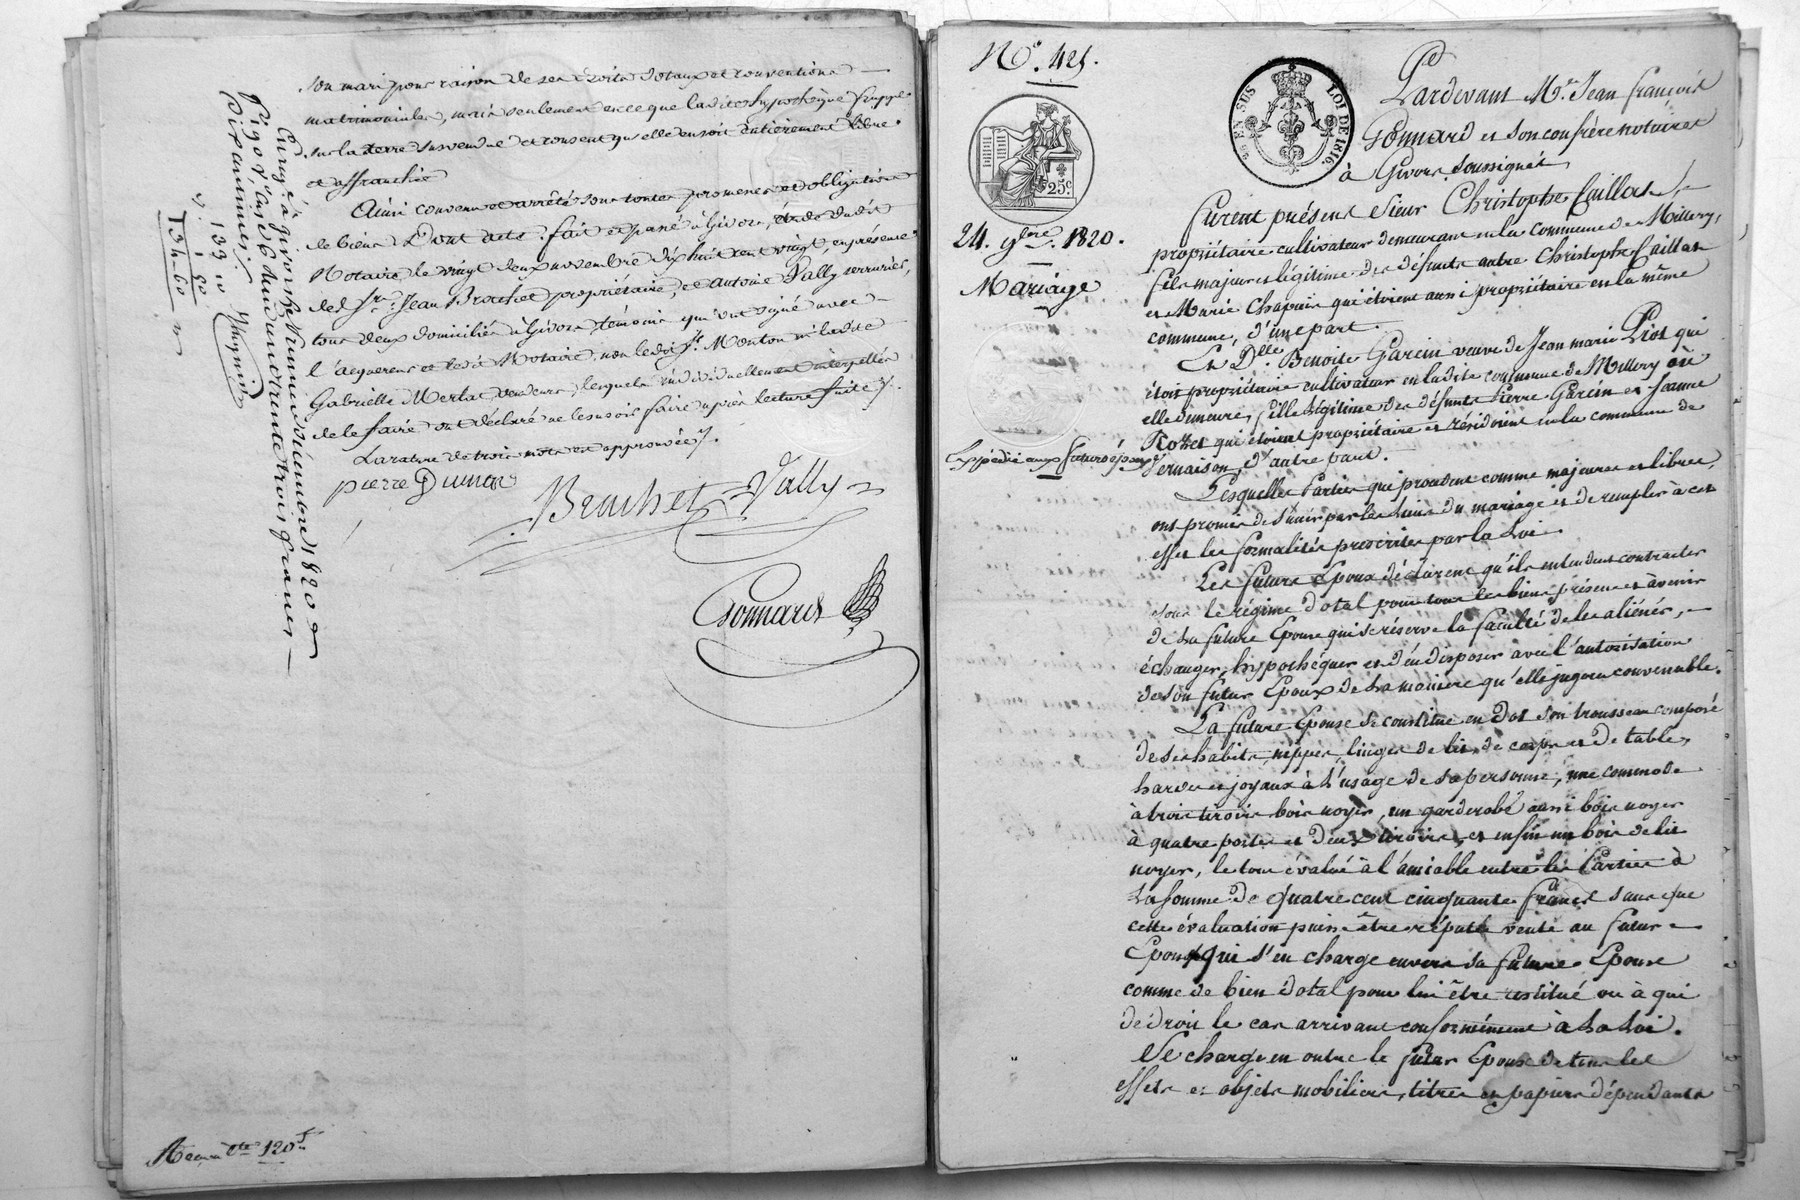 son mari pour raison de ses droits dotaux et conventions
matrimoniales, mais seulement en ce que ladite hypothèque frappe
sur la terre susvendue et consent qu'elle en soit entièrement libre
et affranchie
Ainsi convenu et arrêté sous toutes promesses et obligations
de biens Dont acte. fait et passé à Givors, étude dudit
Notaire le vingt deux novembre dix huit cent vingt, en présence
de Sr. Jean Brochet propriétaire, et antoine Vally serrurier,
tous deux domiciliés à Givors témoins qui ont signé avec
l'acquereur et ledit Notaire, non ledit Sr. Monton ni ladite
Gabrielle Mertat vendeurs, lesquels individuellement interpellés
de le faire ont déclaré ne le savoir faire après lecture faite ./.
La rature de trois mots est approuvée ./.
pierre
Brochet Vally
Gonnard
Enregé à givors le premier décembre 1820 fo
Reçu cent trente trois francs
dix centimes
133 10
1 50
134 60
120f
No. 421.
EN SUS
LOI DE 1816
25c.
24. 9bre. 1820.
Mariage
Expédié aux futurs époux
Pd
Pardevant Me. Jean françois
Gonnard et son confrère notaires
à Givors soussignés
furent présent Sieur Christophe Caillat
propriétaire cultivateur demeurant en la commune de Millery,
fils majeur et légitime des défunts autre Christophe Caillat
et Marie Chapuis qui étoient aussi propriétaire en la même
commune, d'une part.
Et Dlle. Benoite Garcin veuve de Jean marie Piot qui
étoit propriétaire cultivateur en ladite commune de Millery où
elle demeure, fille légitime des défunts Pierre Garcin et Jeanne
qui étoient propriétaire et résidoient en la commune de
Vernaison, d'autre part.
Lesquelles Parties qui procedent comme majeures et libres,
ont promis de s'unir par les liens du mariage et de remplir à cet
effet les formalités prescrites par la Loi.
Les futurs Epoux déclarent qu'ils entendent contracter
sous le régime dotal pour tous les biens présens et à venir
de la future Epouse qui se réserve la faculté de les aliéner,
échanger, hypothéquer et d'en disposer avec l'autorisation
de son futur Epoux de la manière qu'elle jugera convenable.
La future Epouse se constitue en dot son trousseau composé
de ses habits, nippes, linges de lit, de corps et de table,
hardes et joyaux à l'usage de sa personne, une commode
à trois tiroirs bois noyer, un garderobe aussi bois noyer
à quatre portes et deux tiroirs, et enfin un bois de lit
noyer, le tout évalué à l'amiable entre les Parties à
la somme de quatre cent cinquante francs sans que
cette évaluation puisse être réputée vente au futur
Epoux qui s'en charge envers sa future Epouse
comme de bien dotal pour lui être restitué ou à qui
de droit le cas arrivant conformément à la Loi.
Se charge en outre le futur Epoux de tous les
effets et objets mobiliers, titres et papiers dépendants